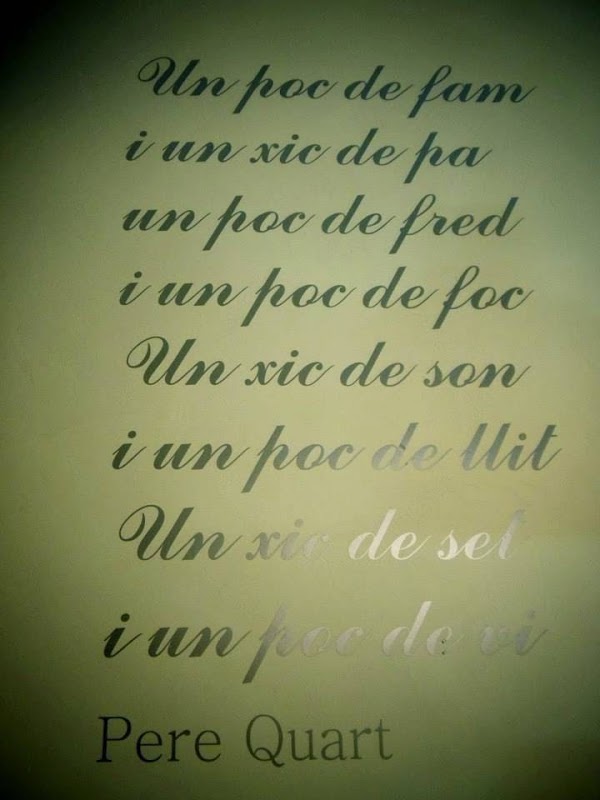 Un poc de fam
i un xic de pa
un poc de fred
i un poc de foc
Un xic de son
i un poc de llit
Un xic de set
i un poc de vi
Pere Quart